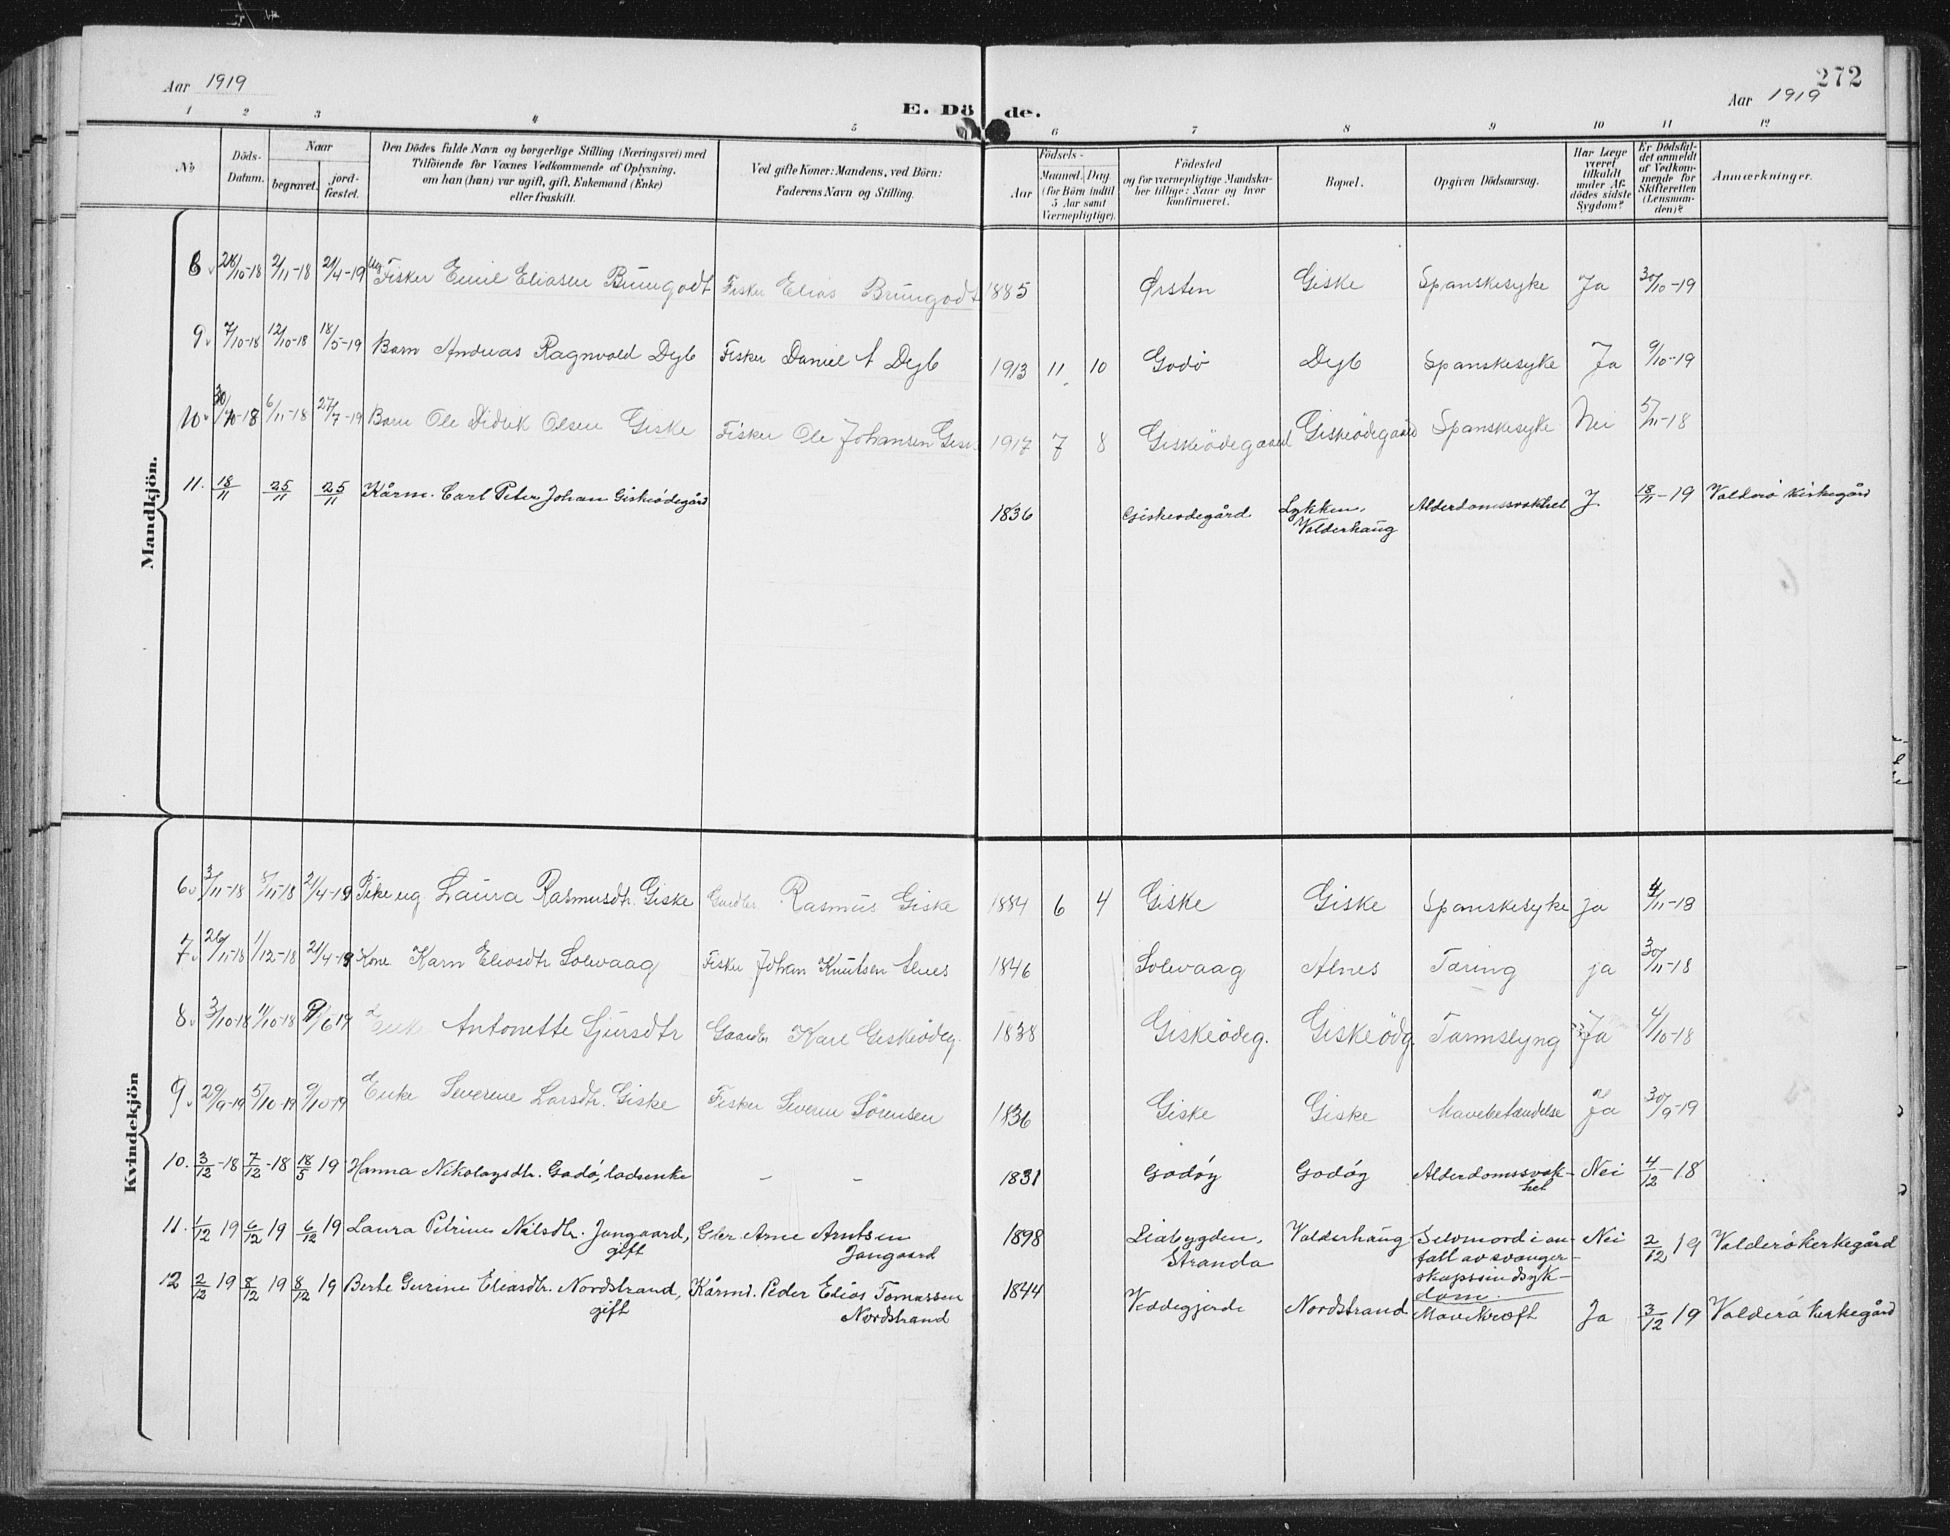 272
Aar 1919
Aar 1919
E. Dö de.
1 2 3 4 5 6 7 8 9 10 11 12
No
Döds-
Datum.
Naar
begravet.
jord-
fæstet.
Den Dödes fulde Navn og borgerlige Stilling (Næringsvei) med
Tilföiende for Voxnes Vedkommende af Oplysning,
om han (hun) var ugift, gift, Enkemand (Enke)
eller fraskilt.
Ved gifte Koner: Mandens, ved Börn:
Faderens Navn og Stilling.
Födsels-
Aar
Maaned. Dag
(for Börn indtil
5 Aar samt
Værnepligtige).
Födested
og for værnepligtige Mandska-
ber tillige: Naar og hvor
konfirmeret.
Bopæl.
Opgiven Dödsaarsag.
Har Læge
været
tilkaldt
under Af-
dödes sidste
Sygdom?
Er Dödsfal-
det anmeldt
af Vedkom-
mende for
Skifteretten
(Lensman-
den)?
Anmærkninger.
Mandkjön.
8 28/10-18 2/11-18 21/4-19 Ug Fisker Emil Eliasen Brungodt Fisker Elias Brungodt 1885 Ørsten Giske Spanskesyke Ja 30/10-19
9 7/10-18 12/10-18 18/5-19 Barn Andreas Ragnvald Dyb Fisker Daniel A Dyb 1913 11 10 Godö Dyb Spanskesyke Ja 9/10-19
10 30/10-18 6/11-18 27/7-19 Barn Ole Didrik Olsen Giske Fisker Ole Johansen Gisk 1917 7 8 Giskeödegaard Giskeödegaard Spanskesyke Nei 5/11-18
11. 18/11 25/11 25/11 Kårm. Carl Peter Johan Giskeödegård 1836 Giskeödegård Lykken, Alderdomssvakhet J. 18/11-19 Valderö kirkegård
Valderhaug
Kvindekjön
6 3/11-18 8/11-18 21/4-19 Pike ug Laura Rasmusdtr. Giske Gardbr Rasmus Giske 1884 6 4 Giske Giske Spanskesyke ja 4/11-18
7 26/11-18 1/12-18 21/4-19 Kone Karn Eliasdtr Solevaag Fisker Johan Knutsen Alnes 1846 Solevaag Alnes Tæring ja 30/11-18
8 3/10-18 11/10-18 /6 19 Enke Antonette Sjursdtr Gaardbr Karl Giskeödeg. 1838 Giskeödeg. Giskeödg. Tarmslyng Ja 4/10-18
9 29/9-19 5/10-19 9/10-19 Enke Severine Larsdtr. Giske Fisker Severin Sörensen 1836 Giske Giske Mavebetændelse Ja 30/9-19
10. 3/12-18 7/12-18 18/5 19 Hanna Nikolaysdtr. Godö, ladsenke – – 1831 Godöy Godöy Alderdomssvak- Nei 4/12-18
het
11. 1/12 19 6/12 19 6/12 19 Laura Petrine Nilsdtr. Jangaard, Gbr. Arne Arntsen 1898 Liabygden, Valderhaug Selvmord i an- Nei 2/12 19 Valderö kirkegård
gift Jangaard Stranda fall av svanger-
skapssindsyk-
dom.
12 2/12 19 8/12 19 8/12 19 Berte Gurine Eliasdtr. Nordstrand, Kårmd. Peder Elias Tomassen 1844 Veddegjerde Nordstrand Mavekræft Ja 3/12 19 Valderö kirkegård
gift Nordstrand